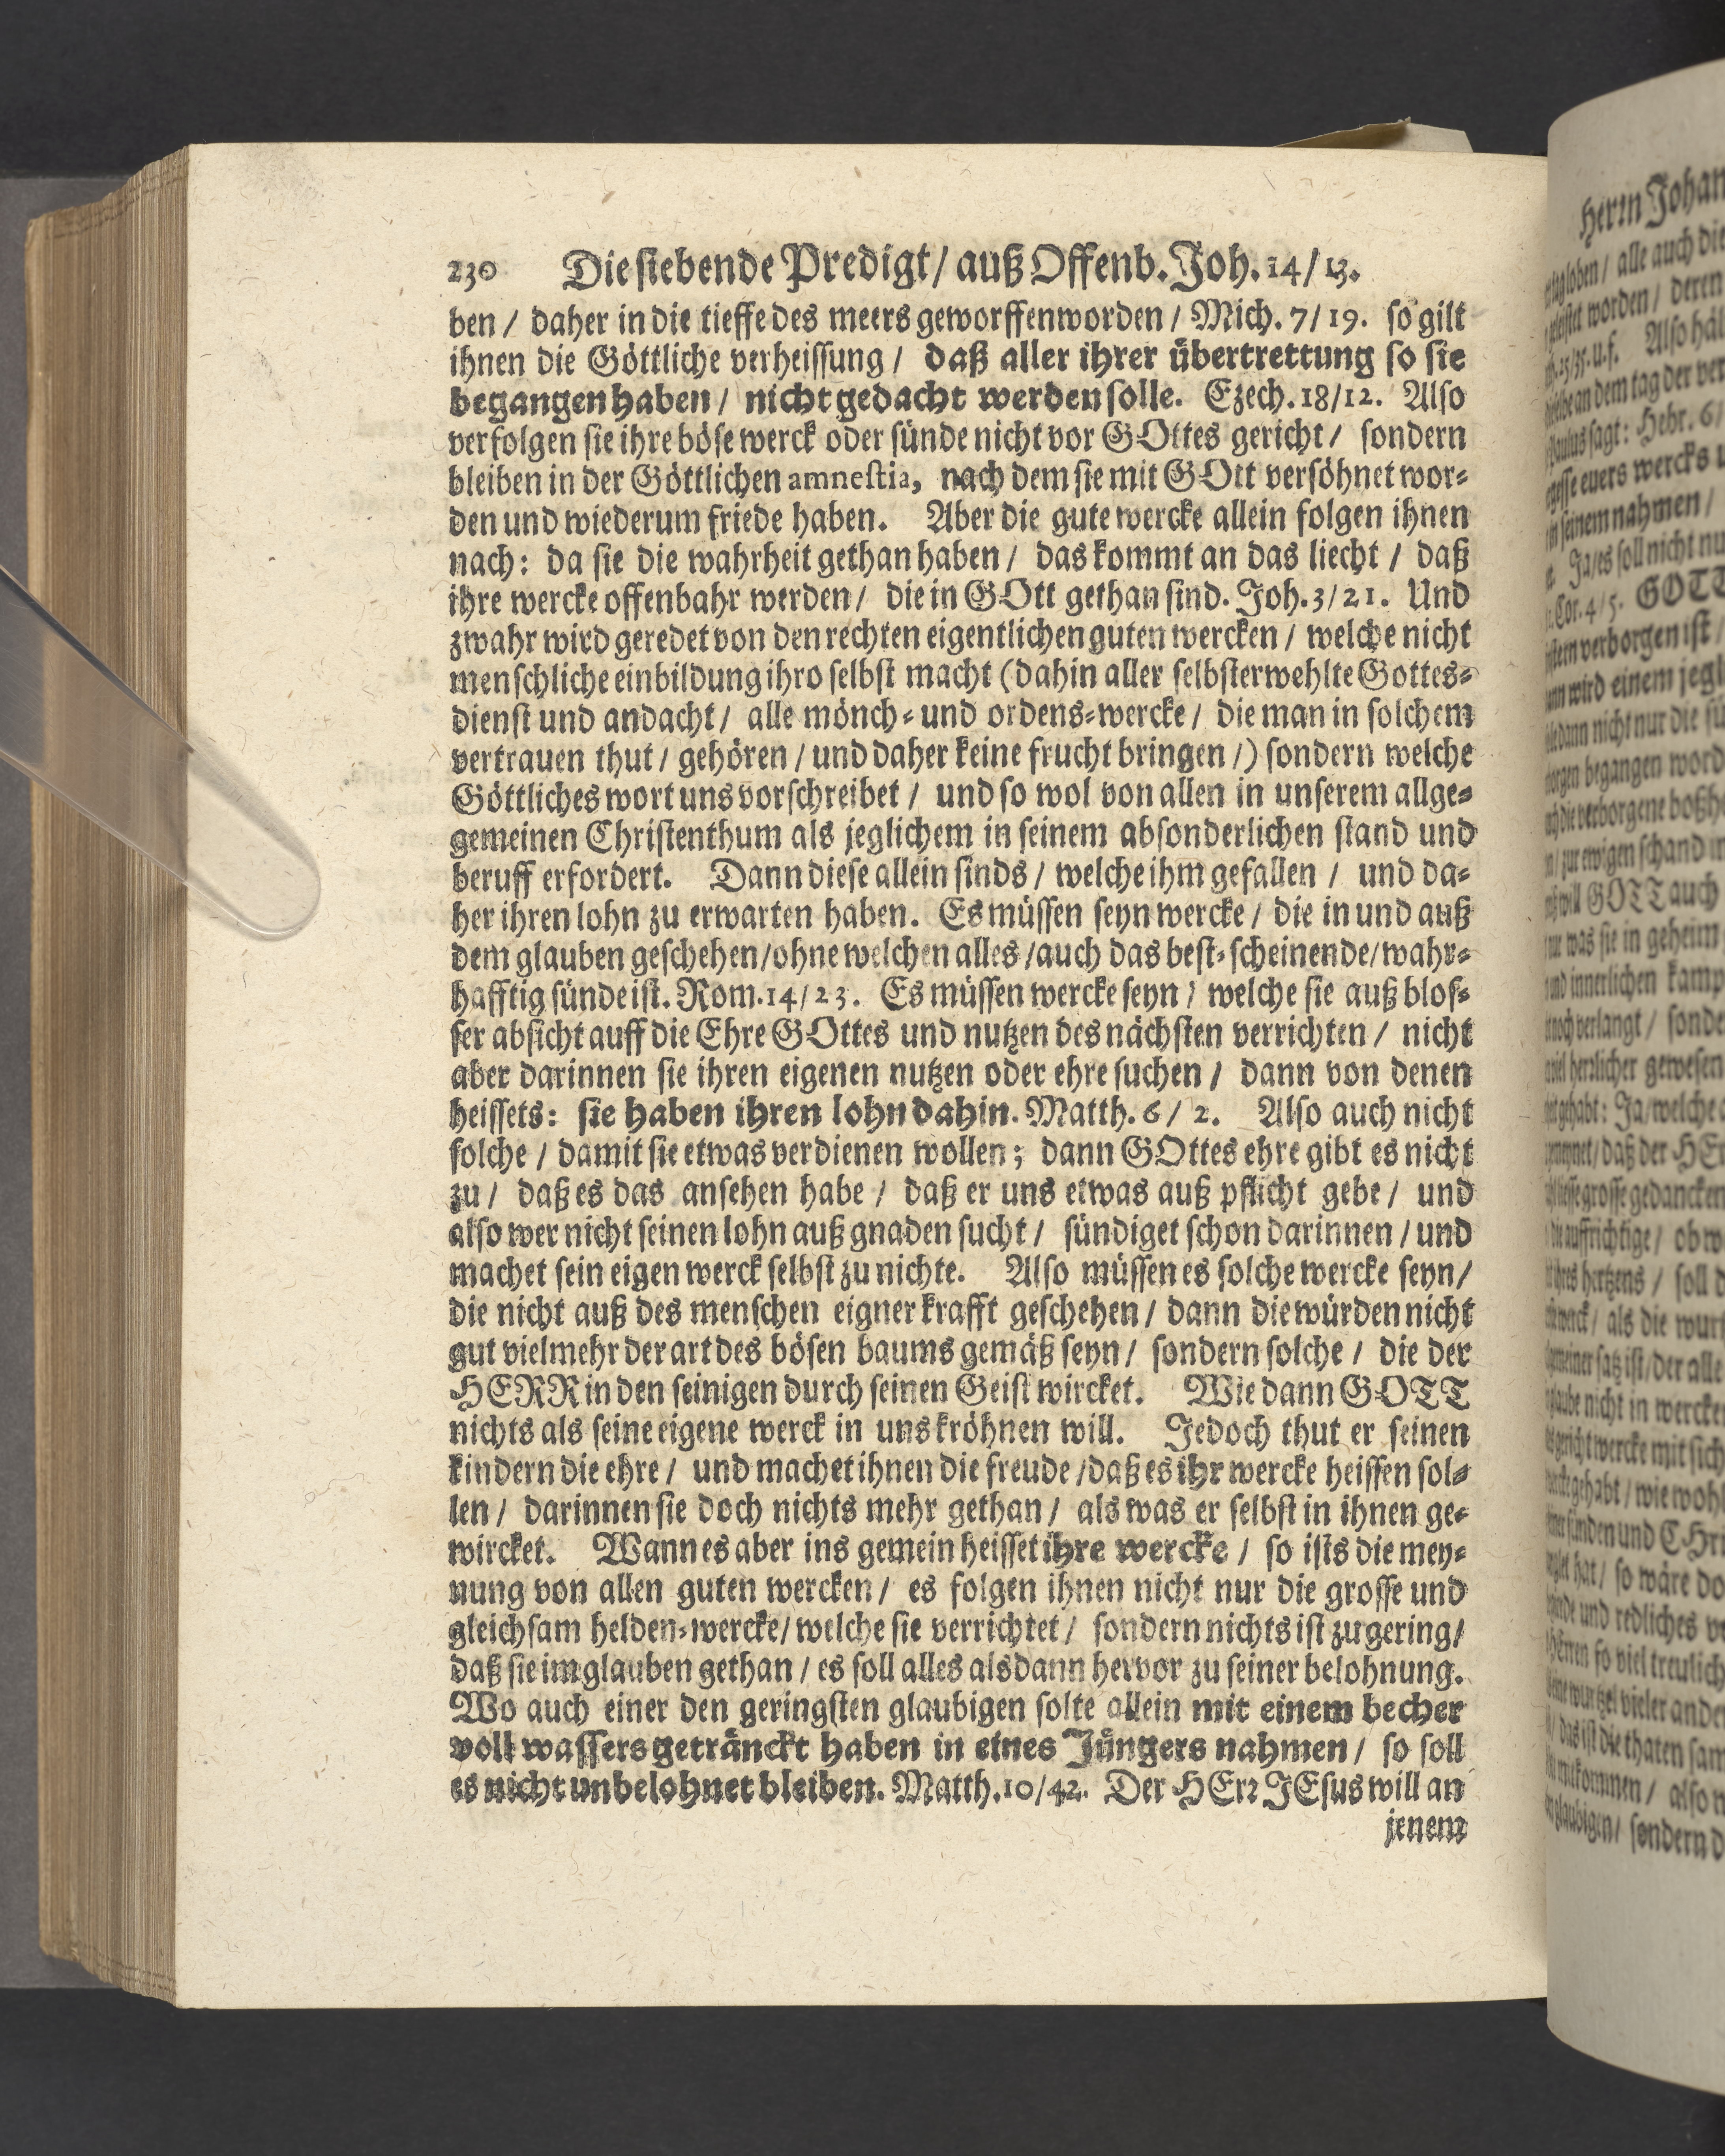 230 Die siebende Predigt / auß Offenb. Joh. 14 / 13.
ben / daher in die tieffe des meers geworffen worden / Mich. 7 / 19. so gilt
ihnen die Göttliche verheissung / daß aller ihrer übertrettung so sie
begangen haben / nicht gedacht werden solle. Ezech. 18 / 12. Also
verfolgen sie ihre böse werck oder sünde nicht vor GOttes gericht / sondern
bleiben in der Göttlichen amnestia, nach dem sie mit GOtt versöhnet wor-
den und wiederum friede haben. Aber die gute wercke allein folgen ihnen
nach: da sie die wahrheit gethan haben / das kommt an das liecht / daß
ihre wercke offenbahr werden / die in GOtt gethan sind. Joh. 3 / 21. Und
zwahr wird geredet von den rechten eigentlichen guten wercken / welche nicht
menschliche einbildung ihro selbst macht (dahin aller selbsterwehlte Gottes-
dienst und andacht / alle mönch- und ordens-wercke / die man in solchem
vertrauen thut / gehören / und daher keine frucht bringen /) sondern welche
Göttliches wort uns vorschreibet / und so wol von allen in unserem allge-
gemeinen Christenthum als jeglichem in seinem absonderlichen stand und
beruff erfordert. Dann diese allein sinds / welche ihm gefallen / und da-
her ihren lohn zu erwarten haben. Es müssen seyn wercke / die in und auß
dem glauben geschehen / ohne welchen alles / auch das best-scheinende / wahr-
hafftig sünde ist. Rom. 14 / 23. Es müssen wercke seyn / welche sie auß blos-
ser absicht auff die Ehre GOttes und nutzen des nächsten verrichten / nicht
aber darinnen sie ihren eigenen nutzen oder ehre suchen / dann von denen
heissets: sie haben ihren lohn dahin. Matth. 6 / 2. Also auch nicht
solche / damit sie etwas verdienen wollen; dann GOttes ehre gibt es nicht
zu / daß es das ansehen habe / daß er uns etwas auß pflicht gebe / und
also wer nicht seinen lohn auß gnaden sucht / sündiget schon darinnen / und
machet sein eigen werck selbst zu nichte. Also müssen es solche wercke seyn /
die nicht auß des menschen eigner krafft geschehen / dann die würden nicht
gut vielmehr der art des bösen baums gemäß seyn / sondern solche / die der
HERR in den seinigen durch seinen Geist wircket. Wie dann GOTT
nichts als seine eigene werck in uns kröhnen will. Jedoch thut er seinen
kindern die ehre / und machet ihnen die freude / daß es ihr wercke heissen sol-
len / darinnen sie doch nichts mehr gethan / als was er selbst in ihnen ge-
wircket. Wann es aber ins gemein heisset ihre wercke / so ists die mey-
nung von allen guten wercken / es folgen ihnen nicht nur die grosse und
gleichsam helden-wercke / welche sie verrichtet / sondern nichts ist zu gering /
daß sie im glauben gethan / es soll alles alsdann hervor zu seiner belohnung.
Wo auch einer den geringsten glaubigen solte allein mit einem becher
voll wassers geträncket haben in eines Jüngers nahmen / so soll
es nicht unbelohnet bleiben. Matth. 10 / 42. Der HErr JEsus will an
jenem